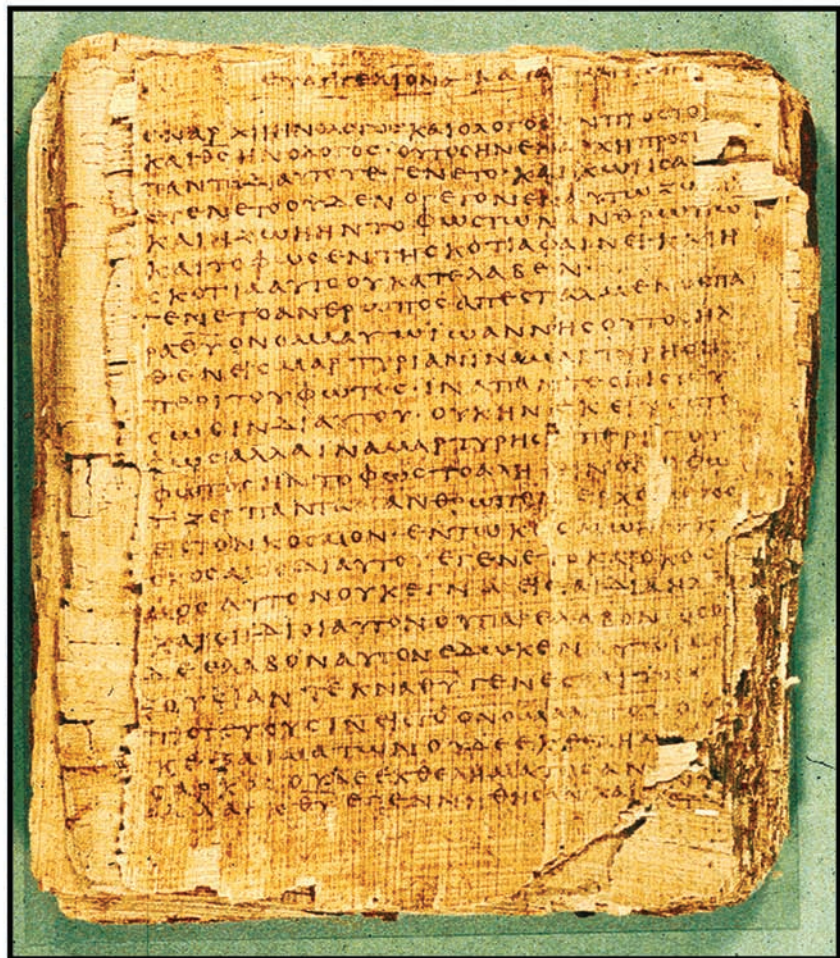 ΕΥΑΓΓΕΛΙΟΝ ΚΑΤΑ
ΕΝΑΡΧΗΙΗΝΟΛΟΓΟϹΚΑΙΟΛΟΓΟϹΗΝΠΡΟϹΤΟ
ΚΑΙΘϹΗΝΟΛΟΓΟϹ·ΟΥΤΟϹΗΝΕΝΑΡΧΗΠΡΟϹ
ΠΑΝΤΑΔΙΑΥΤΟΥΕΓΕΝΕΤΟ·ΚΑΙΧΩΡΙϹΑ
ΕΓΕΝΕΤΟΟΥΔΕΝΟΓΕΓΟΝΕΝΕΝΑΥΤΩΖΩ
ΚΑΙΗΖΩΗΗΝΤΟΦΩϹΤΩΝΑΝΘΡΩΠΩ
ΚΑΙΤΟΦΩϹΕΝΤΗϹΚΟΤΙΑΦΑΙΝΕΙ·ΚΑΙΗ
ϹΚΟΤΙΑΑΥΤΟΟΥΚΑΤΕΛΑΒΕΝ·
ΕΓΕΝΕΤΟΑΝΘΡΩΠΟϹΑΠΕϹΤΑΛΜΕΝΟϹΠΑ
ΡΑΘΥΟΝΟΜΑΑΥΤΩΙΩΑΝΝΗϹΟΥΤΟϹΗΛ
ΘΕΝΕΙϹΜΑΡΤΥΡΙΑΝΙΝΑΜΑΡΤΥΡΗϹΗ
ΠΕΡΙΤΟΥΦΩΤΟϹ·ΙΝΑΠΑΝΤΕϹΠΙϹΤΕΥ
ϹΩϹΙΝΔΙΑΥΤΟΥ·ΟΥΚΗΝΕΚΕΙΝΟϹΤΟ
ΦΩϹΑΛΛΑΙΝΑΜΑΡΤΥΡΗϹΗΠΕΡΙΤΟΥ
ΦΩΤΟϹΗΝΤΟΦΩϹΤΟΑΛΗΘΙΝΟΝΟΦΩ
ΤΙΖΕΙΠΑΝΤΑΑΝΘΡΩΠΟΝΕΡΧΟΜΕΝΟΝ
ΕΙϹΤΟΝΚΟϹΜΟΝ·ΕΝΤΩΚΟϹΜΩΗΝΚ
ΟΚΟϹΜΟϹΔΙΑΥΤΟΥΕΓΕΝΕΤΟΚΑΙΟΚΟϹ
ΜΟϹΑΥΤΟΝΟΥΚΕΓΝΩΕΙϹΤΑΙΔΙΑΗΛΘ
ΚΑΙΟΙΙΔΙΟΙΑΥΤΟΝΟΥΠΑΡΕΛΑΒΟΝ·ΟϹΟΙ
ΔΕΕΛΑΒΟΝΑΥΤΟΝΕΔΩΚΕΝΑΥΤΟΙϹ
ΟΥϹΙΑΝΤΕΚΝΑΘΥΓΕΝΕϹΘΑΙΤΟΙϹ
ΠΙϹΤΕΥΟΥϹΙΝΕΙϹΤΟΟΝΟΜΑΑΥΤΟΥ
ΚΕΞΑΙΜΑΤΩΝΟΥΔΕΕΚΘΕΛΗΜΑ
ϹΑΡΚΟϹΟΥΔΕΕΚΘΕΛΗΜΑΤΟϹΑΝ
ΑΛΛΑΕΚΘΥΕΓΕΝΝΗΘΗϹΑΝΚΑΙ